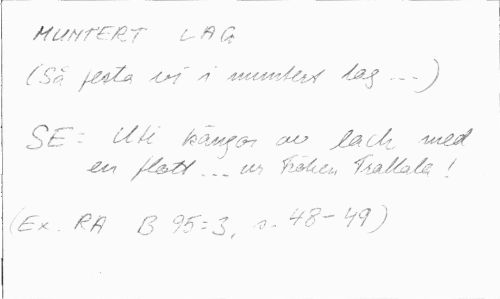 MUNTERT LAG
(Så festa vi i muntert lag ...)
SE: Uti kängor av lack med
en flott ... ur Fröken Trallala!
(Ex. RA B 95:3, s. 48-49)